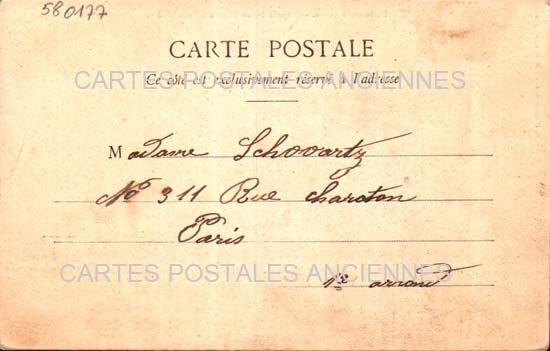 580177
CARTE POSTALE
CARTES POSTALES ANCIENNES
Ce côté est exclusivement réservé à l'adresse
Madame Schovartz
No 311 Rue charoton
Paris
CARTES POSTALES ANCIENNES
12e arrond